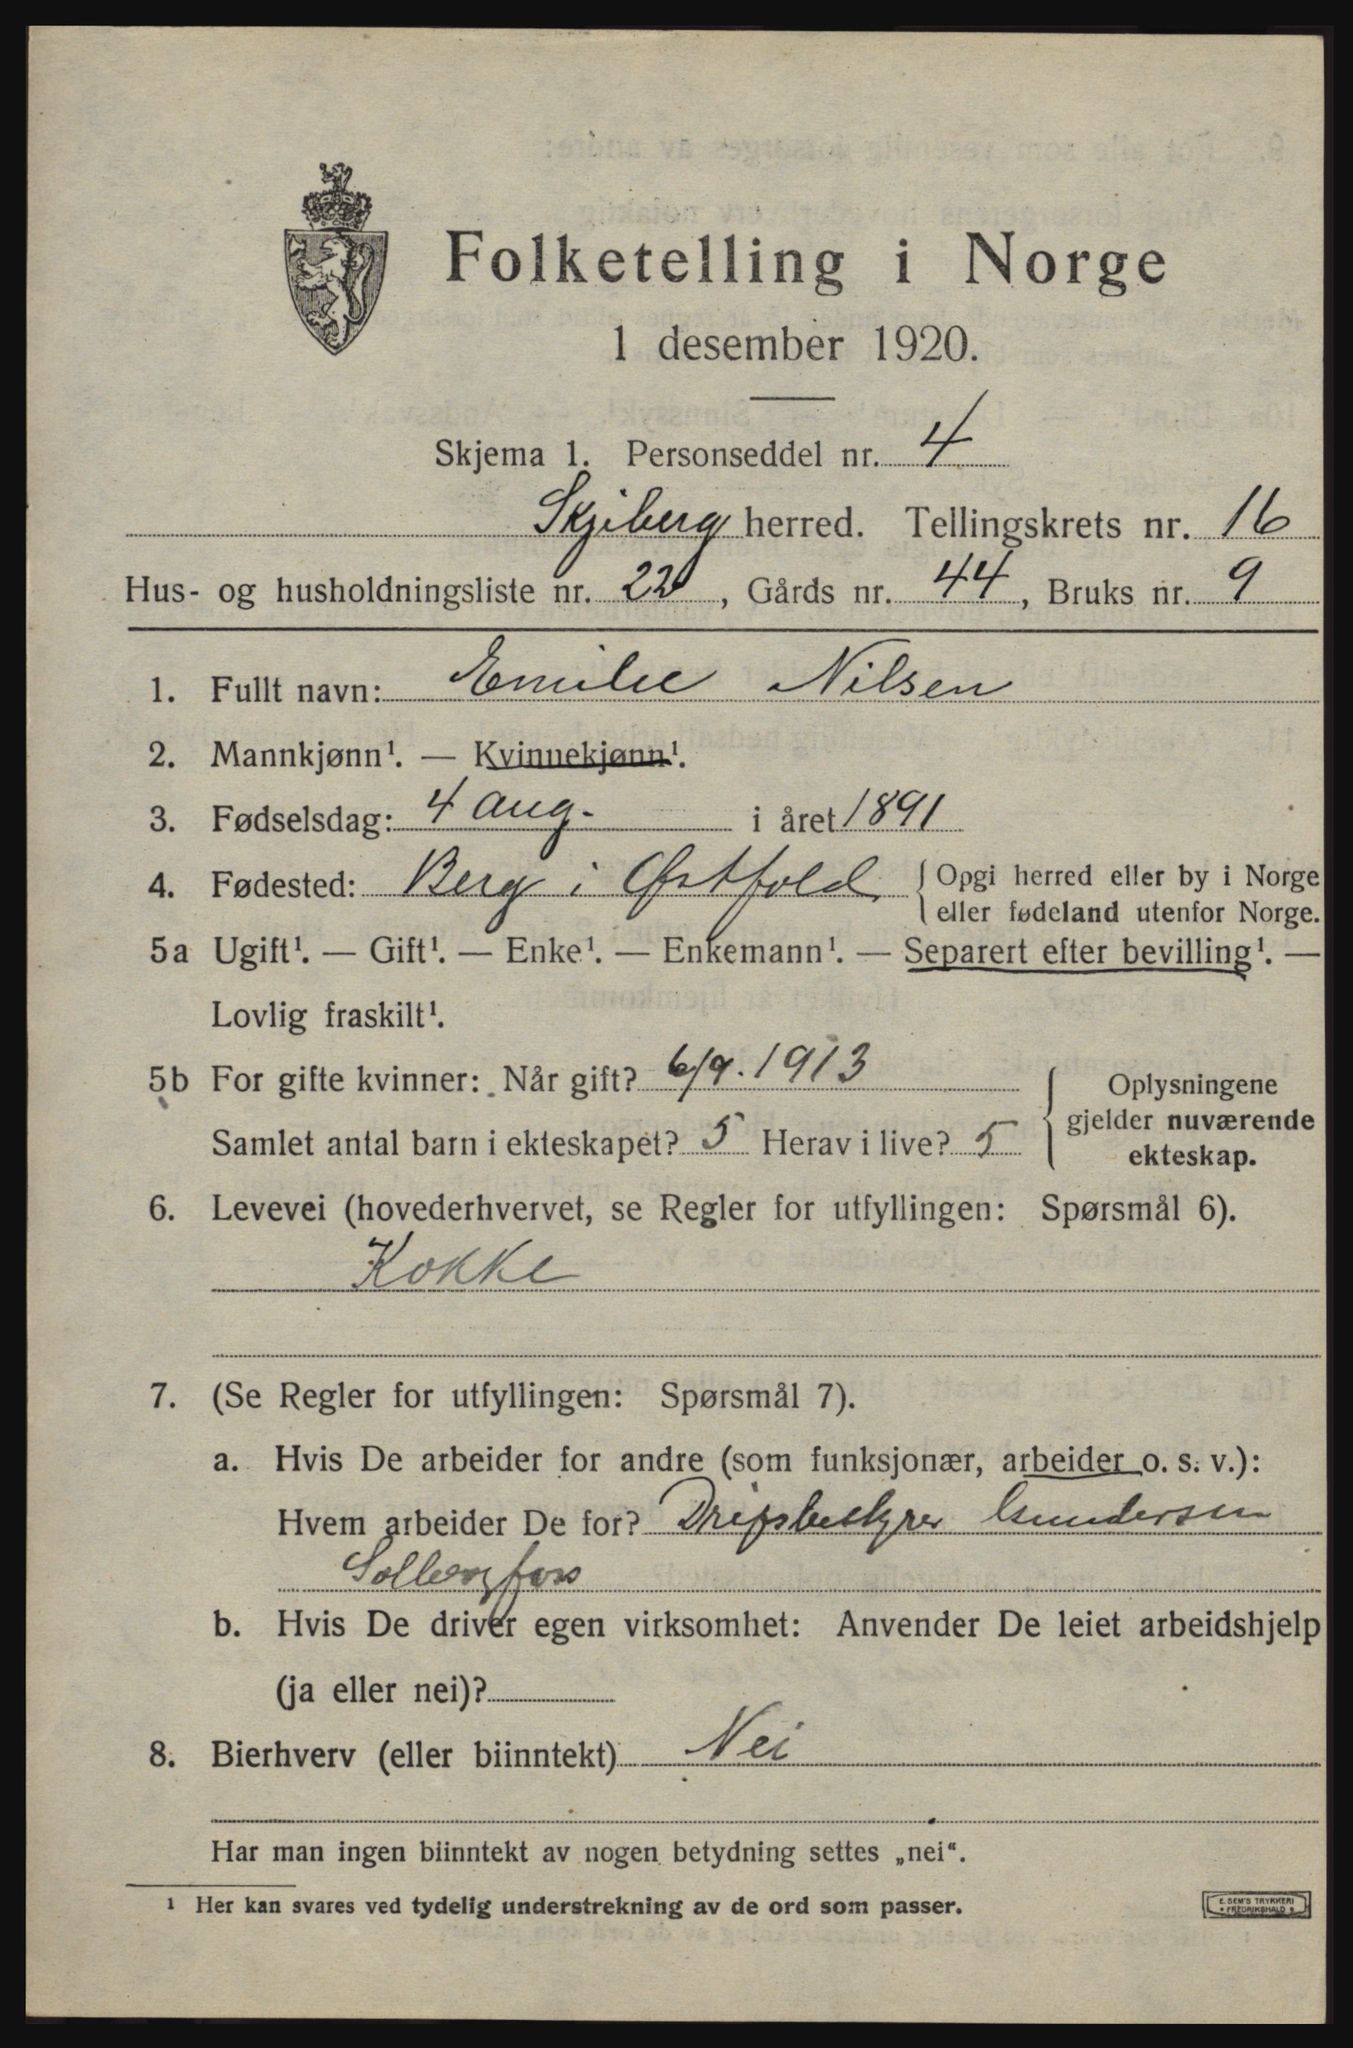 Folketelling i Norge
1 desember 1920.
Skjema 1. Personseddel nr. 4
Skjeberg herred. Tellingskrets nr. 16
Hus- og husholdningsliste nr. 22, Gårds nr. 44, Bruks nr. 9
1. Fullt navn: Emilie Nilsen
2. Mannkjønn¹. — Kvinnekjønn¹.
3. Fødselsdag: 4 aug. i året 1891
4. Fødested: Berg i Østfold {Opgi herred eller by i Norge
eller fødeland utenfor Norge.
5a Ugift¹. — Gift¹. — Enke¹. — Enkemann¹. — Separert efter bevilling¹. —
Lovlig fraskilt¹.
5b For gifte kvinner: Når gift? 6/9. 1913
Samlet antal barn i ekteskapet? 5 Herav i live? 5
{Oplysningene
gjelder nuværende
ekteskap.
6. Levevei (hovederhvervet, se Regler for utfyllingen: Spørsmål 6).
Kokke
7. (Se Regler for utfyllingen: Spørsmål 7).
a. Hvis De arbeider for andre (som funksjonær, arbeider o. s. v.):
Hvem arbeider De for? Drifsbestyrer Gundersen
Solbergfoss
b. Hvis De driver egen virksomhet: Anvender De leiet arbeidshjelp
(ja eller nei)?
8. Bierhverv (eller biinntekt) Nei
Har man ingen biinntekt av nogen betydning settes „nei“.
¹ Her kan svares ved tydelig understrekning av de ord som passer.
E. SEM'S TRYKKERI
FREDRIKSHALD